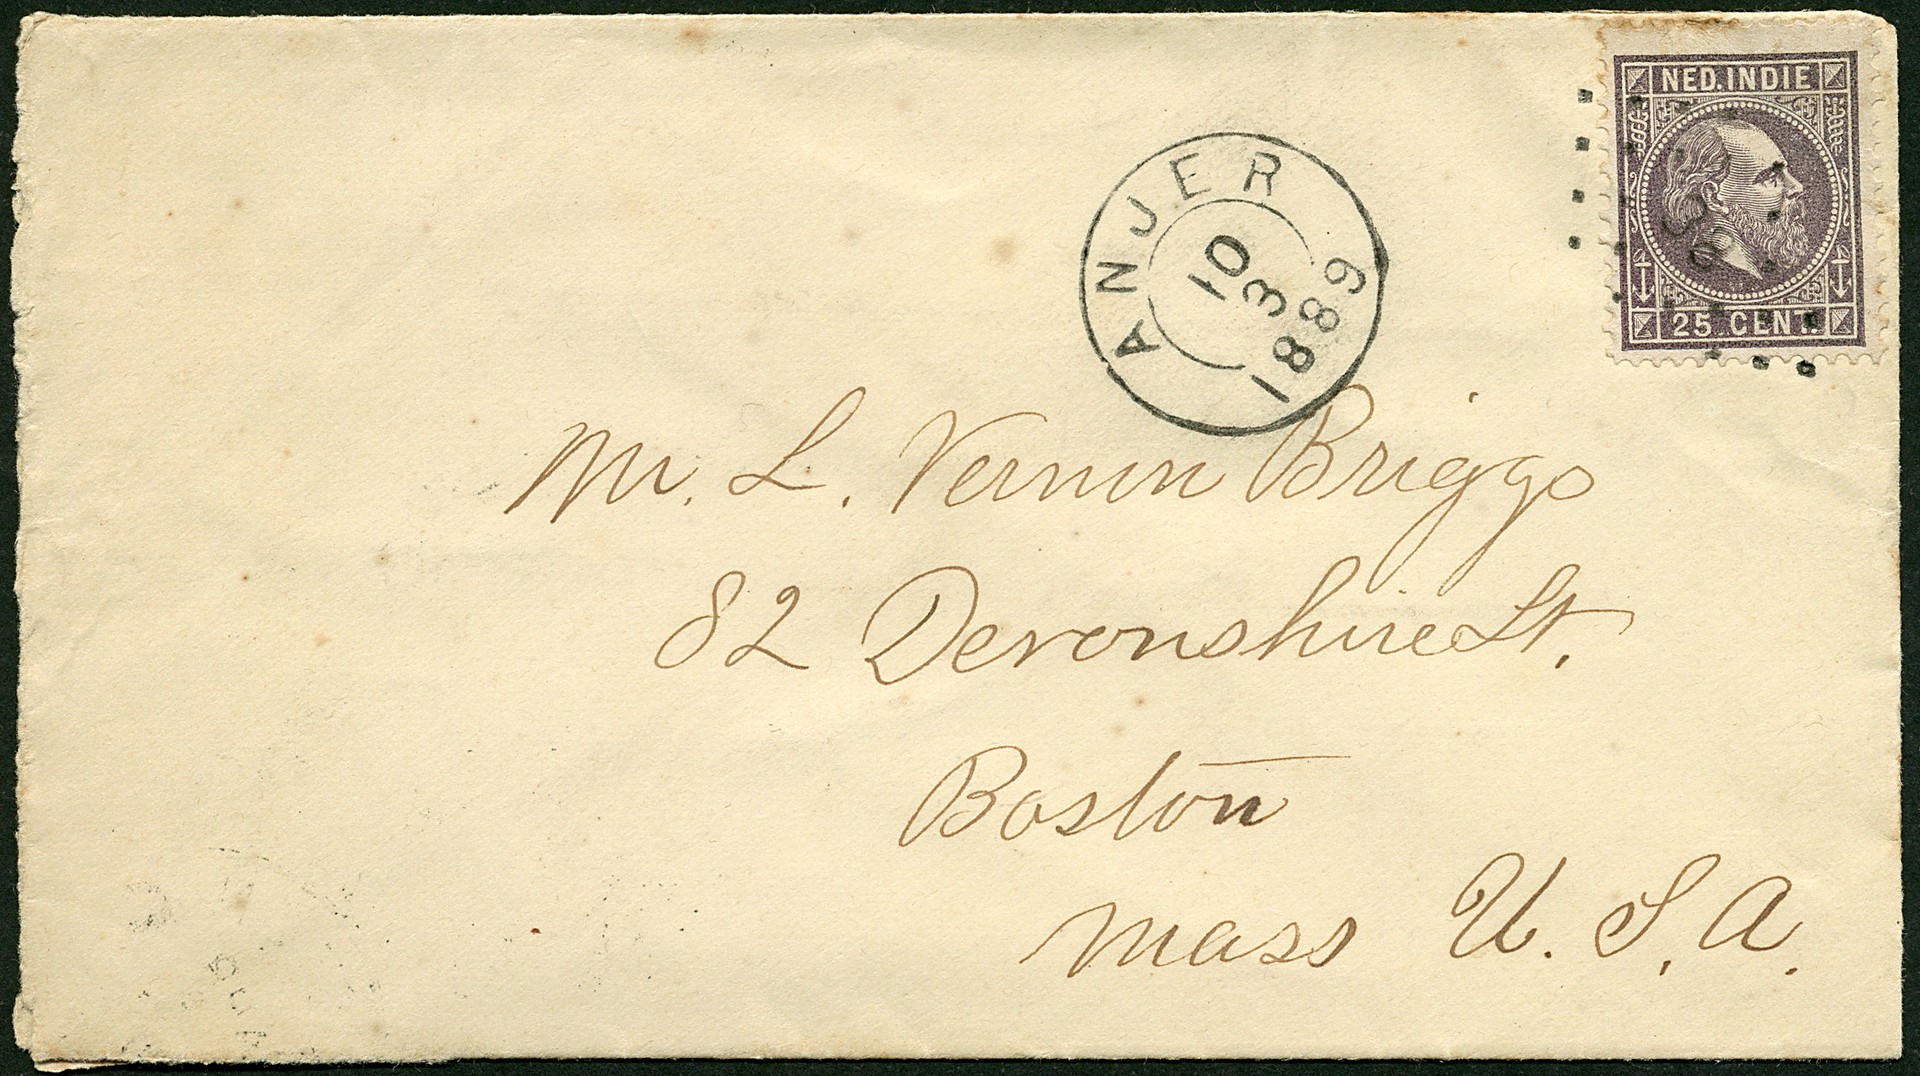 NED. INDIE
25 CENT.
ANJER
10
3
1889
Mr. L. Vernon Briggs
82 Devonshire St.
Boston
Mass U. S. A.